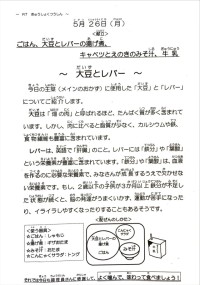 5月 26日（月）
ごはん、大豆とレバーの揚げ煮、
キャベツとえのきのみそ汁、牛乳
～ 大豆とレバー ～
今日の主菜（メインのおかず）に使用した「大豆」と「レバー」
について紹介します。
大豆は「畑の肉」と呼ばれるほど、たんぱく質が多く含まれて
います。しかし、肉に比べると脂質が少なく、カルシウムや鉄、
食物繊維も豊富に含まれています。
レバーは、英語で「肝臓」のこと。レバーには「鉄分」や「葉酸」
という栄養素が豊富に含まれています。「鉄分」や「葉酸」は、血
を作るのに必要な栄養素で、みなさんが成長するうえで欠かせな
い栄養素です。もし、2歳以下の子供が3か月以上鉄分が不足し
た状態が続くと、脳の発達がうまくいかず、運動が苦手になった
り、イライラしやすくなったりすることもあるそうです。
大豆とレバーの
揚げ煮
ごはん
みそ汁